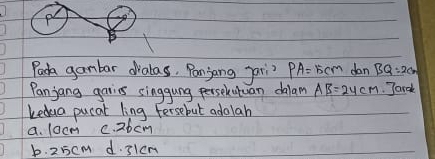 P
B
Pada gambar diatas. Panjang jari² PA=8cm dan BQ=2cm
Panjang garis singgung persekutuan dalam AB=24cm. Jarak
kedua pucat ling tersebut adalah
a. 10cm c. 26cm
b. 25cm d. 31cm